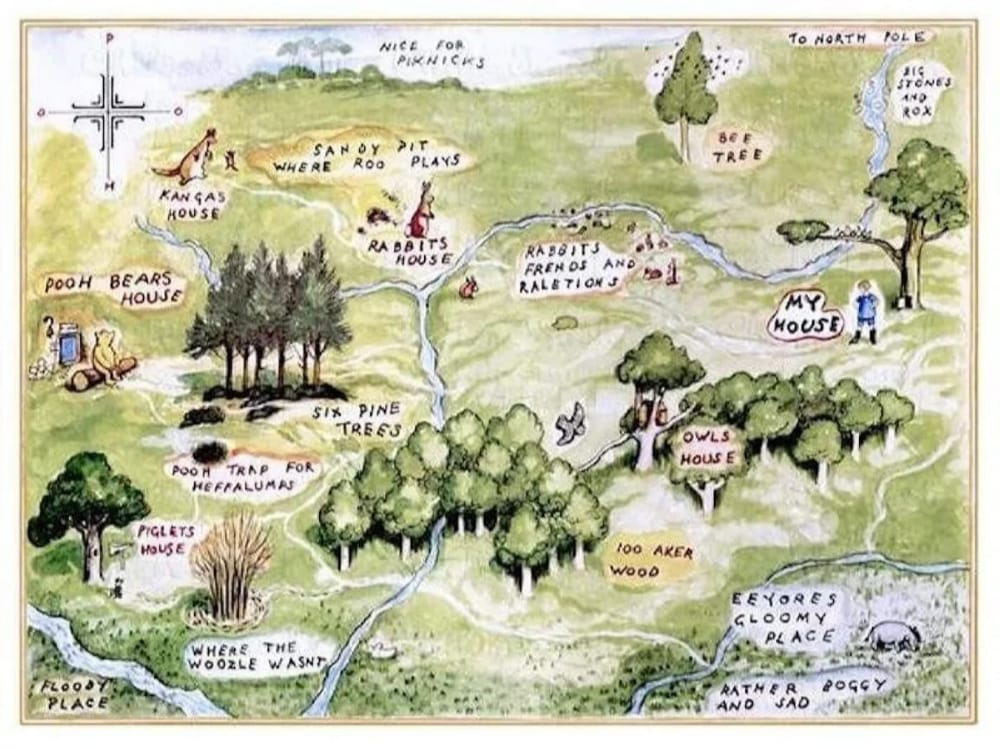 P
O
O
H
NICE FOR
PIKNICKS
TO NORTH POLE
BIG
STONES
AND
ROX
BEE
TREE
SANDY PIT
WHERE ROO PLAYS
KANGAS
HOUSE
RABBITS
HOUSE
RABBITS
FRENDS AND
RALETIONS
POOH BEARS
HOUSE
MY
HOUSE
SIX PINE
TREES
OWLS
HOUSE
POOH TRAP FOR
HEFFALUMPS
PIGLETS
HOUSE
100 AKER
WOOD
EEYORES
GLOOMY
PLACE
WHERE THE
WOOZLE WASNT
FLOODY
PLACE
RATHER BOGGY
AND SAD